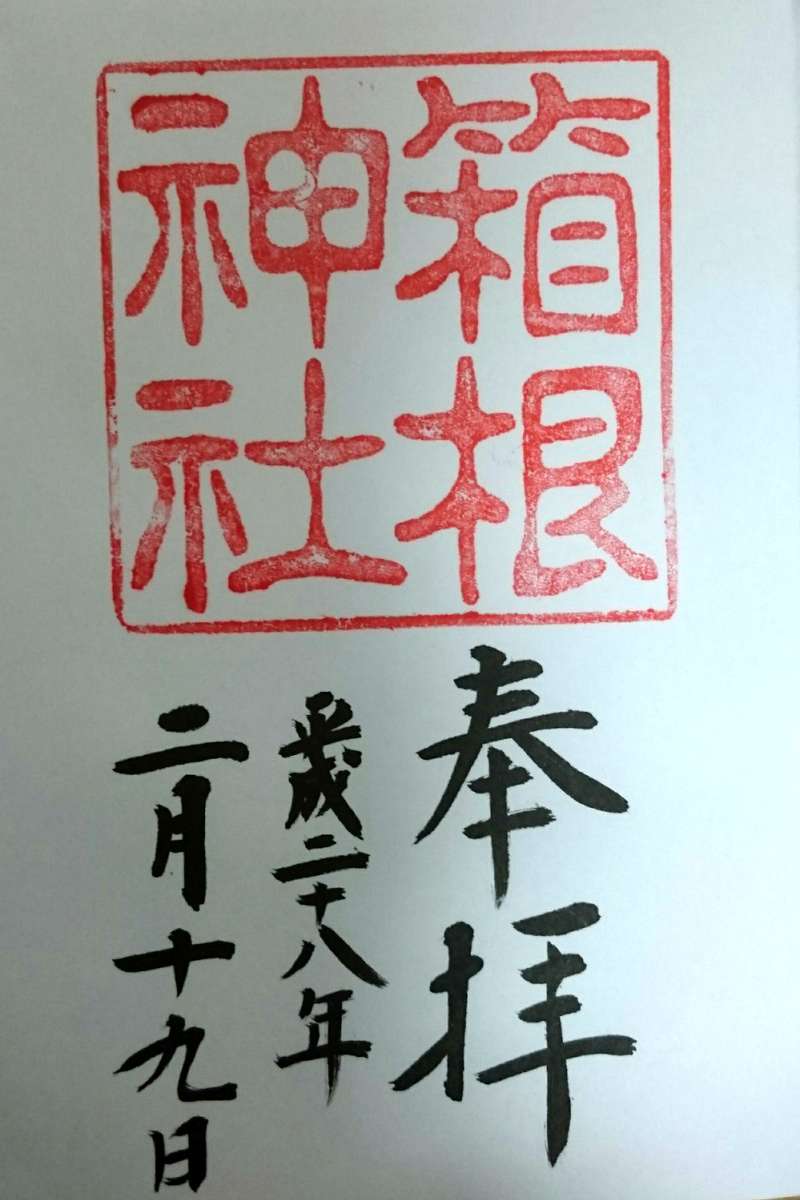 箱根
神社
奉拝
平成二十八年
二月十九日